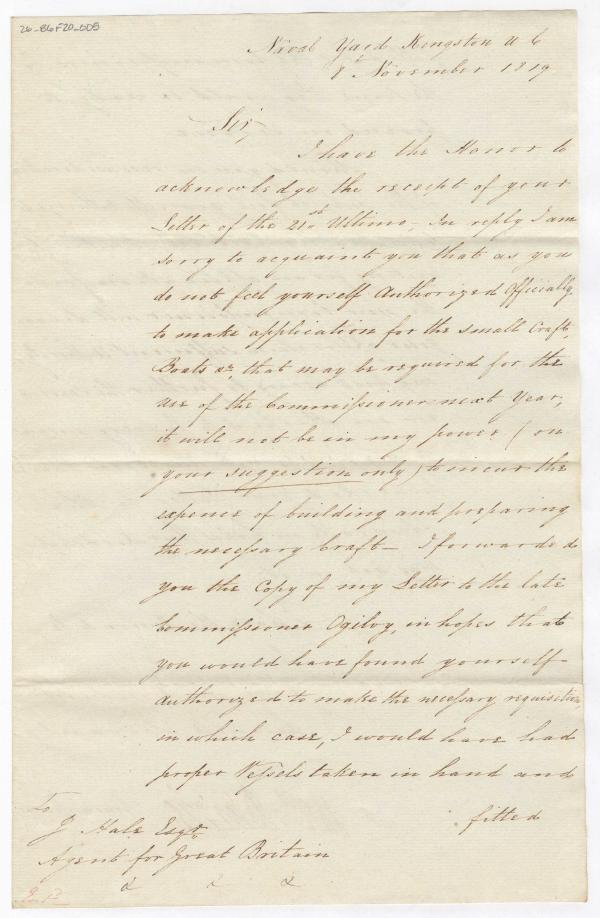 26-B6F20-005
Naval Yard Kingston U C
8th November 1819
Sir,
I have the Honor to
acknowledge the receipt of your
Letter of the 21st Ultimo, In reply I am
sorry to acquaint you that as you
do not feel yourself Authorized Officially
to make application for the small Craft,
Boats &c, that may be required for the
use of the Commissioner next Year,
it will not be in my power (on
your suggestion only) to incur the
expence of building and preparing
the necessary Craft— I forwarded
you the Copy of my Letter to the late
Commissioner Ogilvy, in hopes that
you would have found yourself
authorized to make the necessary requisition,
in which case, I would have had
proper Vessels taken in hand and
fitted
To
J Hale Esqr.
Agent for Great Britain
& & &